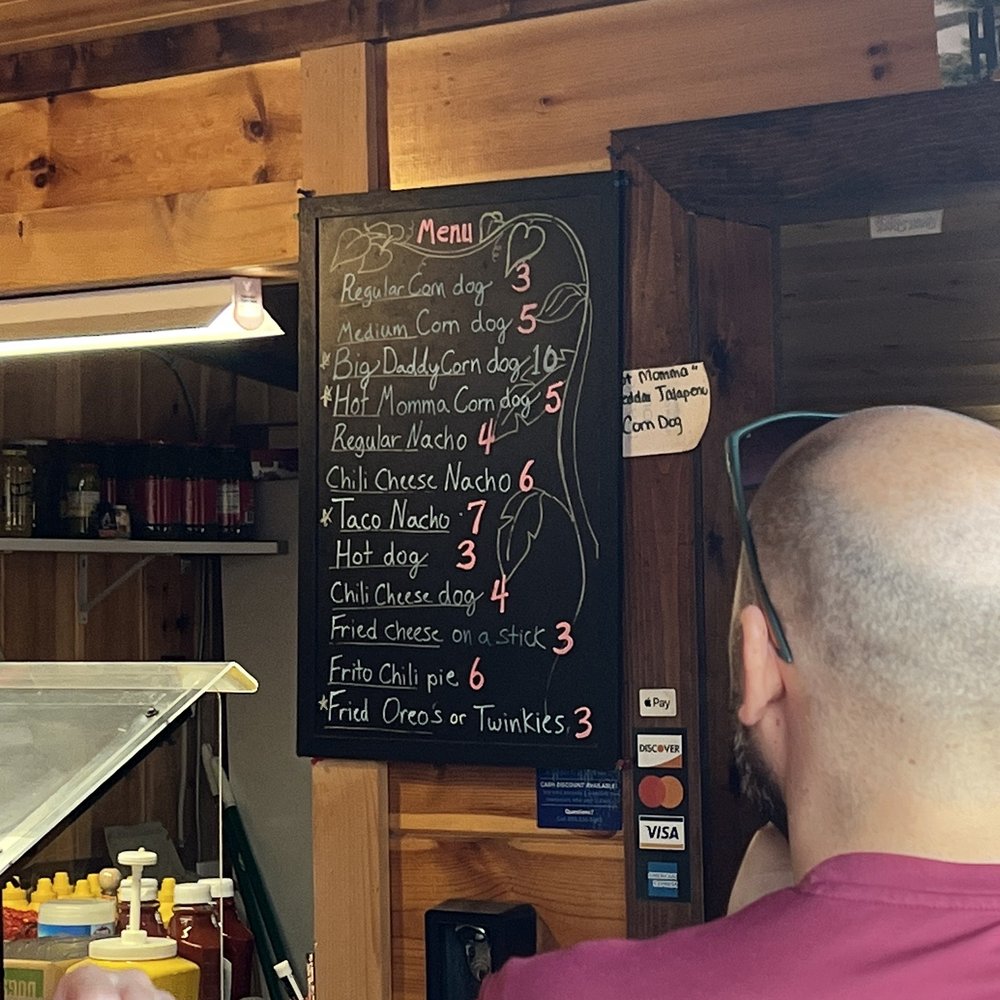 Menu
Regular Corn dog 3
Medium Corn dog 5
* Big Daddy Corn dog 10
* Hot Momma Corn dog 5
Regular Nacho 4
Chili Cheese Nacho 6
* Taco Nacho 7
Hot dog 3
Chili Cheese dog 4
Fried cheese on a stick 3
Frito Chili pie 6
* Fried Oreo's or Twinkies 3
Momma"
Jalapeno
Corn Dog
Pay
DISCOVER
VISA
AMERICAN EXPRESS
CASH DISCOUNT AVAILABLE
Questions?